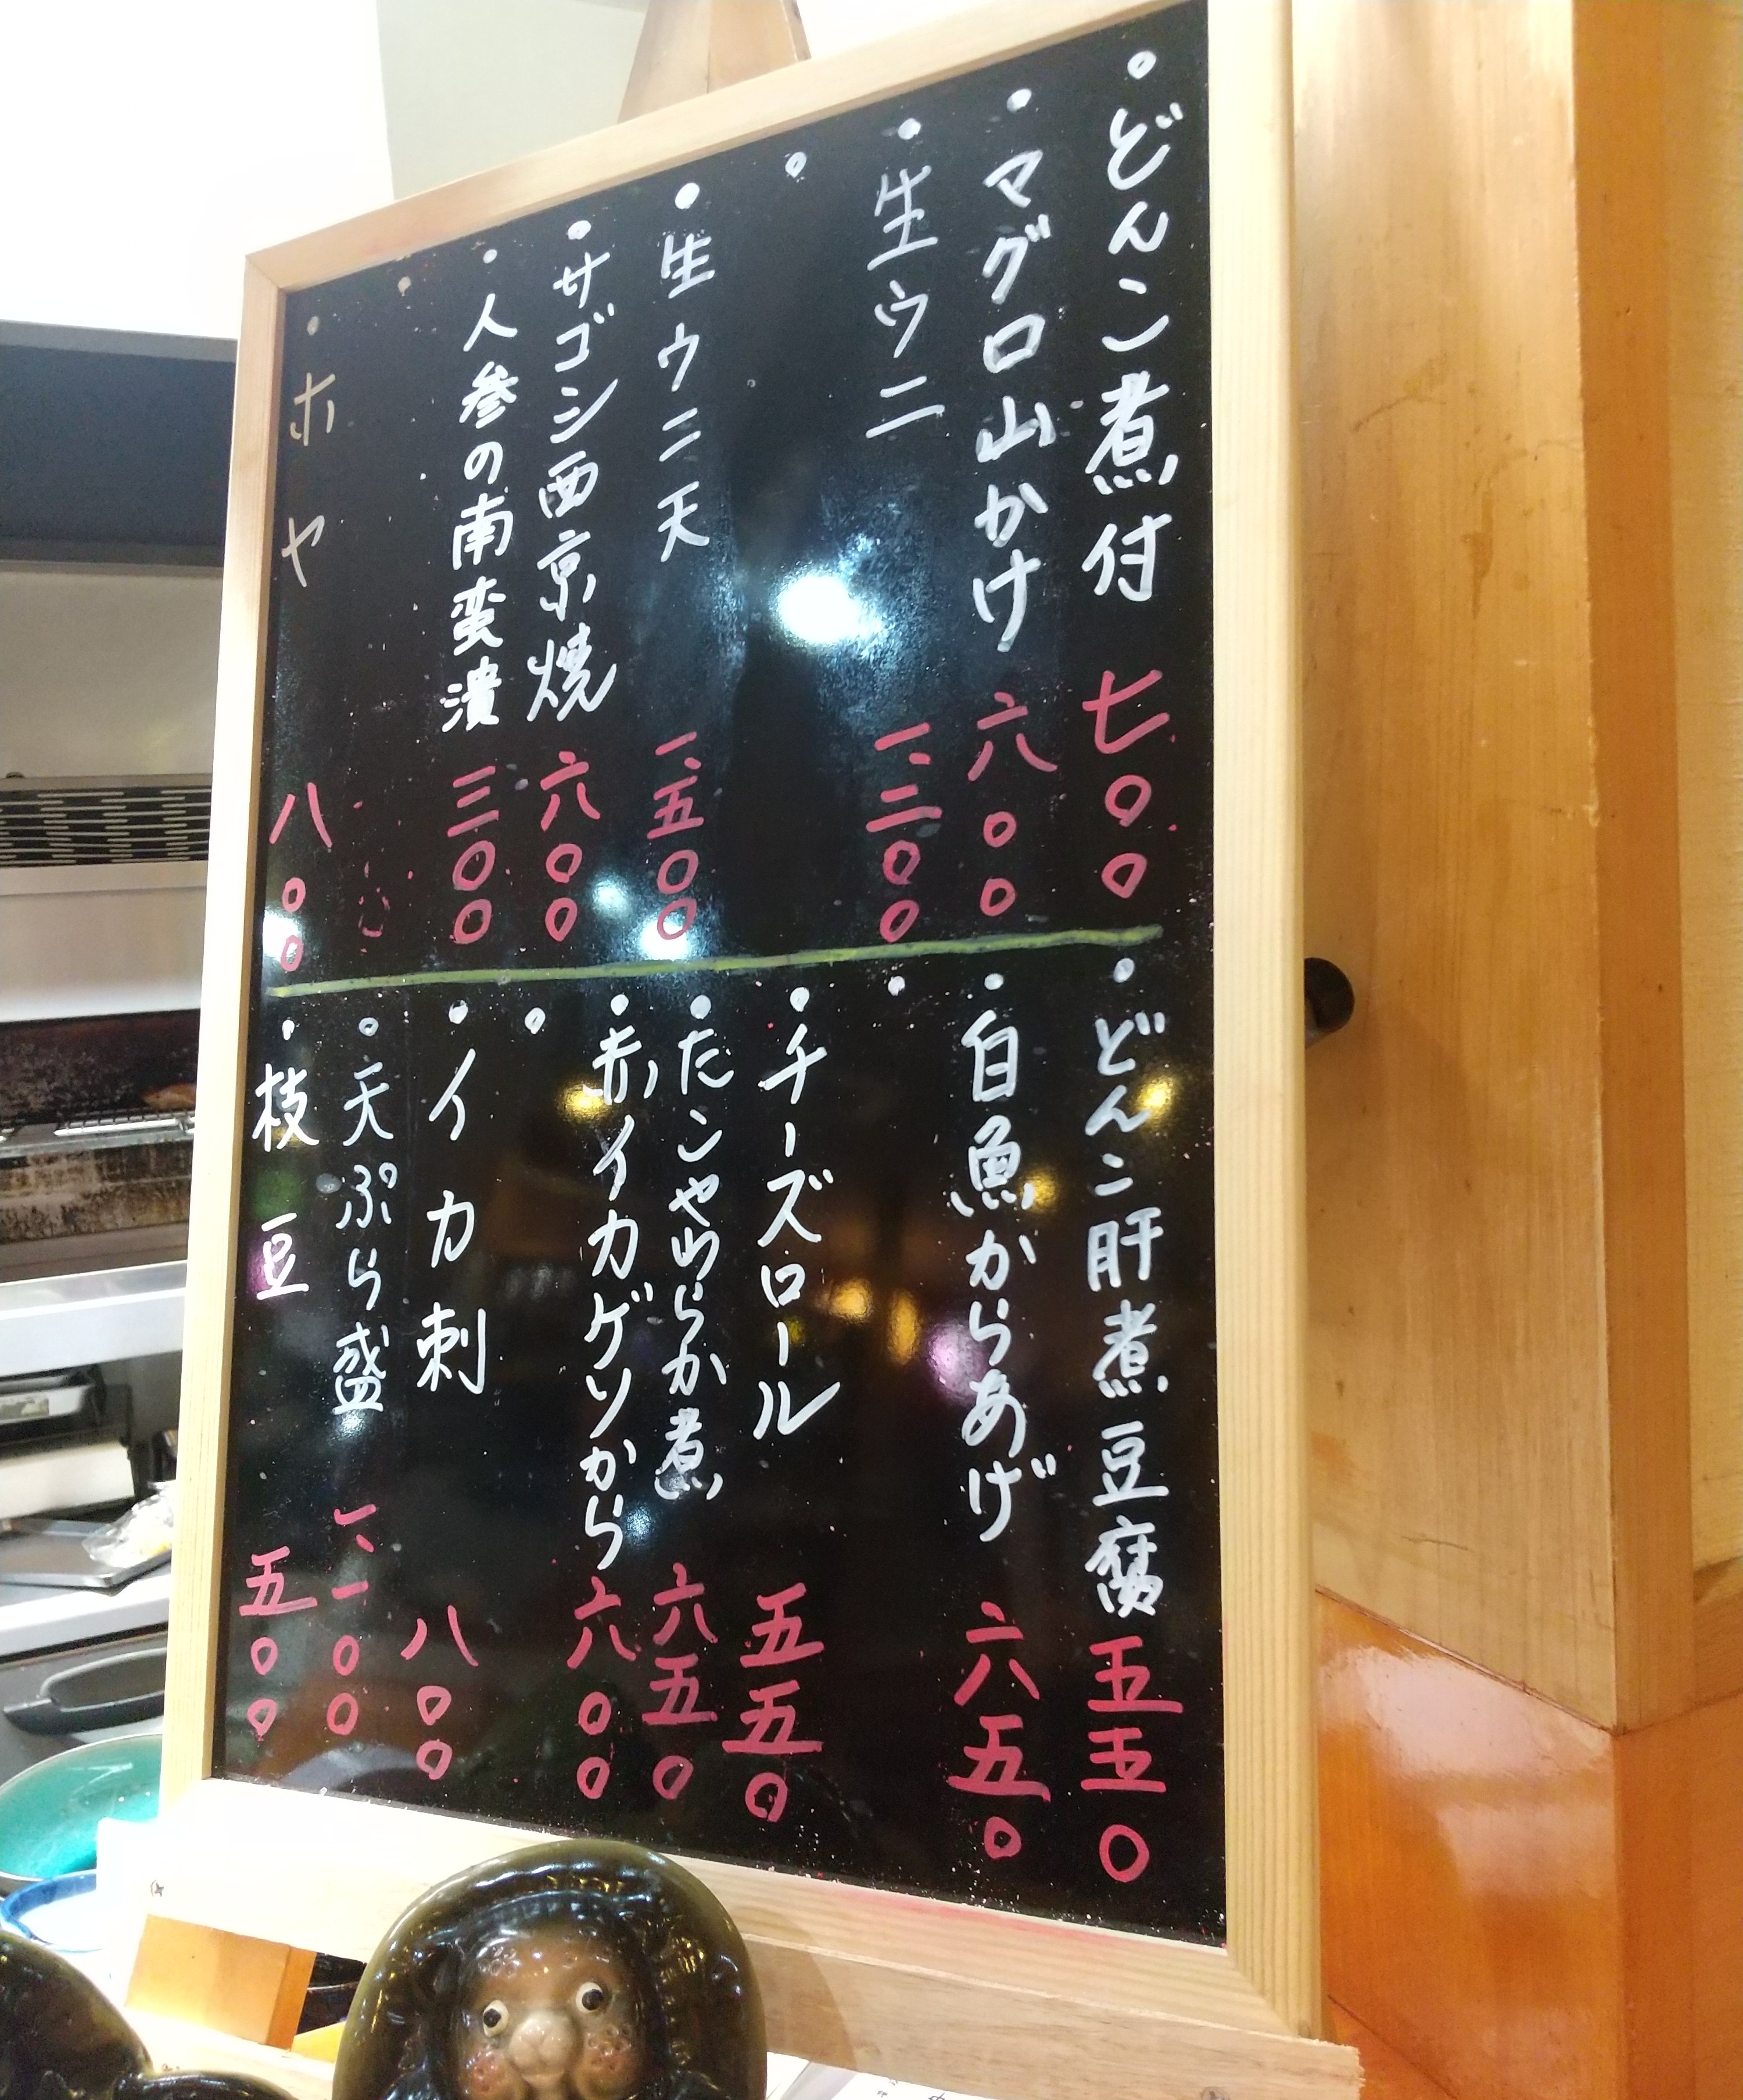 どんこ煮付 七〇〇
マグロ山かけ 六〇〇
生ウニ 一、三〇〇
生ウニ天 一、五〇〇
サゴシ西京焼 六〇〇
人参の南蛮漬 三〇〇
ホヤ 八〇〇
どんこ肝煮豆腐 五五〇
白魚からあげ 六五〇
チーズロール 五五〇
たこやわらか煮 六五〇
赤イカゲソから 六〇〇
イカ刺 八〇〇
天ぷら盛 一、一〇〇
枝豆 五〇〇